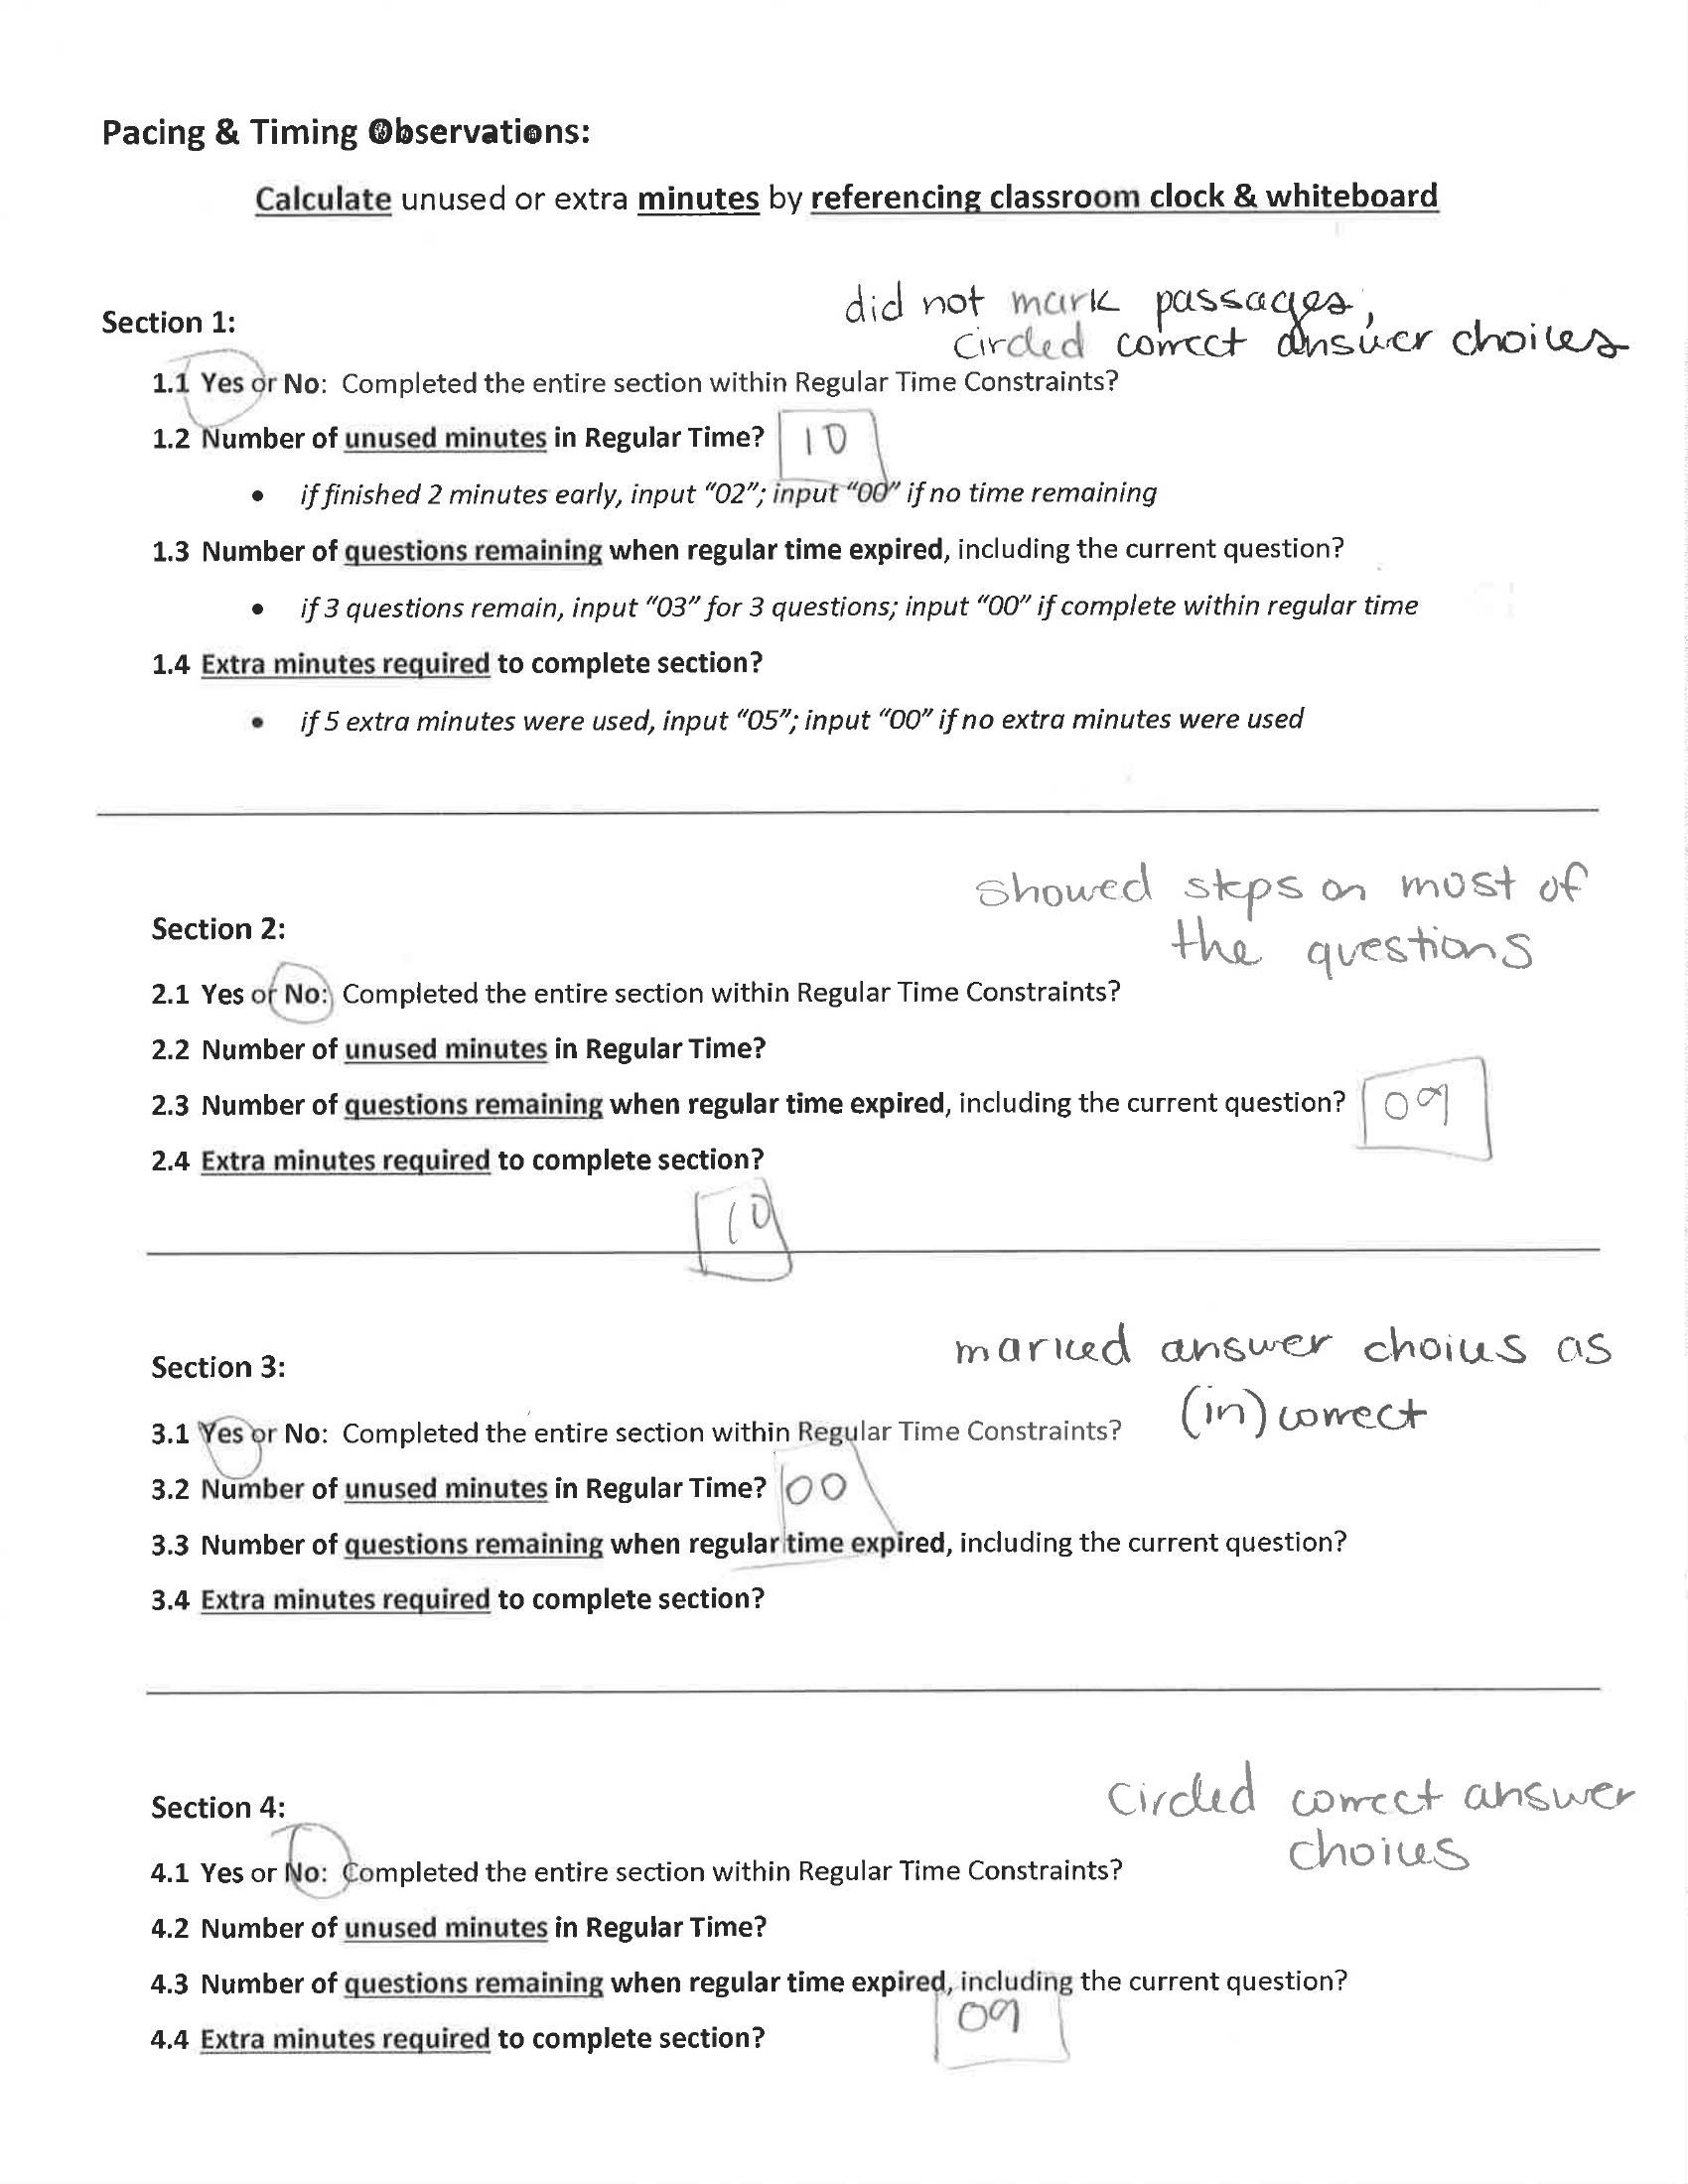 Pacing & Timing Observations:
Calculate unused or extra minutes by referencing classroom clock & whiteboard
did not mark passages,
Section 1:
circled correct answer choices
1.1 Yes or No: Completed the entire section within Regular Time Constraints?
1.2 Number of unused minutes in Regular Time? 10
• if finished 2 minutes early, input “02”; input “00” if no time remaining
1.3 Number of questions remaining when regular time expired, including the current question?
• if 3 questions remain, input “03” for 3 questions; input “00” if complete within regular time
1.4 Extra minutes required to complete section?
• if 5 extra minutes were used, input “05”; input “00” if no extra minutes were used
showed steps on most of
Section 2:
the questions
2.1 Yes or No: Completed the entire section within Regular Time Constraints?
2.2 Number of unused minutes in Regular Time?
2.3 Number of questions remaining when regular time expired, including the current question? 09
2.4 Extra minutes required to complete section?
10
marked answer choices as
Section 3:
(in)correct
3.1 Yes or No: Completed the entire section within Regular Time Constraints?
3.2 Number of unused minutes in Regular Time? 00
3.3 Number of questions remaining when regular time expired, including the current question?
3.4 Extra minutes required to complete section?
circled correct answer
Section 4:
choices
4.1 Yes or No: Completed the entire section within Regular Time Constraints?
4.2 Number of unused minutes in Regular Time?
4.3 Number of questions remaining when regular time expired, including the current question?
09
4.4 Extra minutes required to complete section?